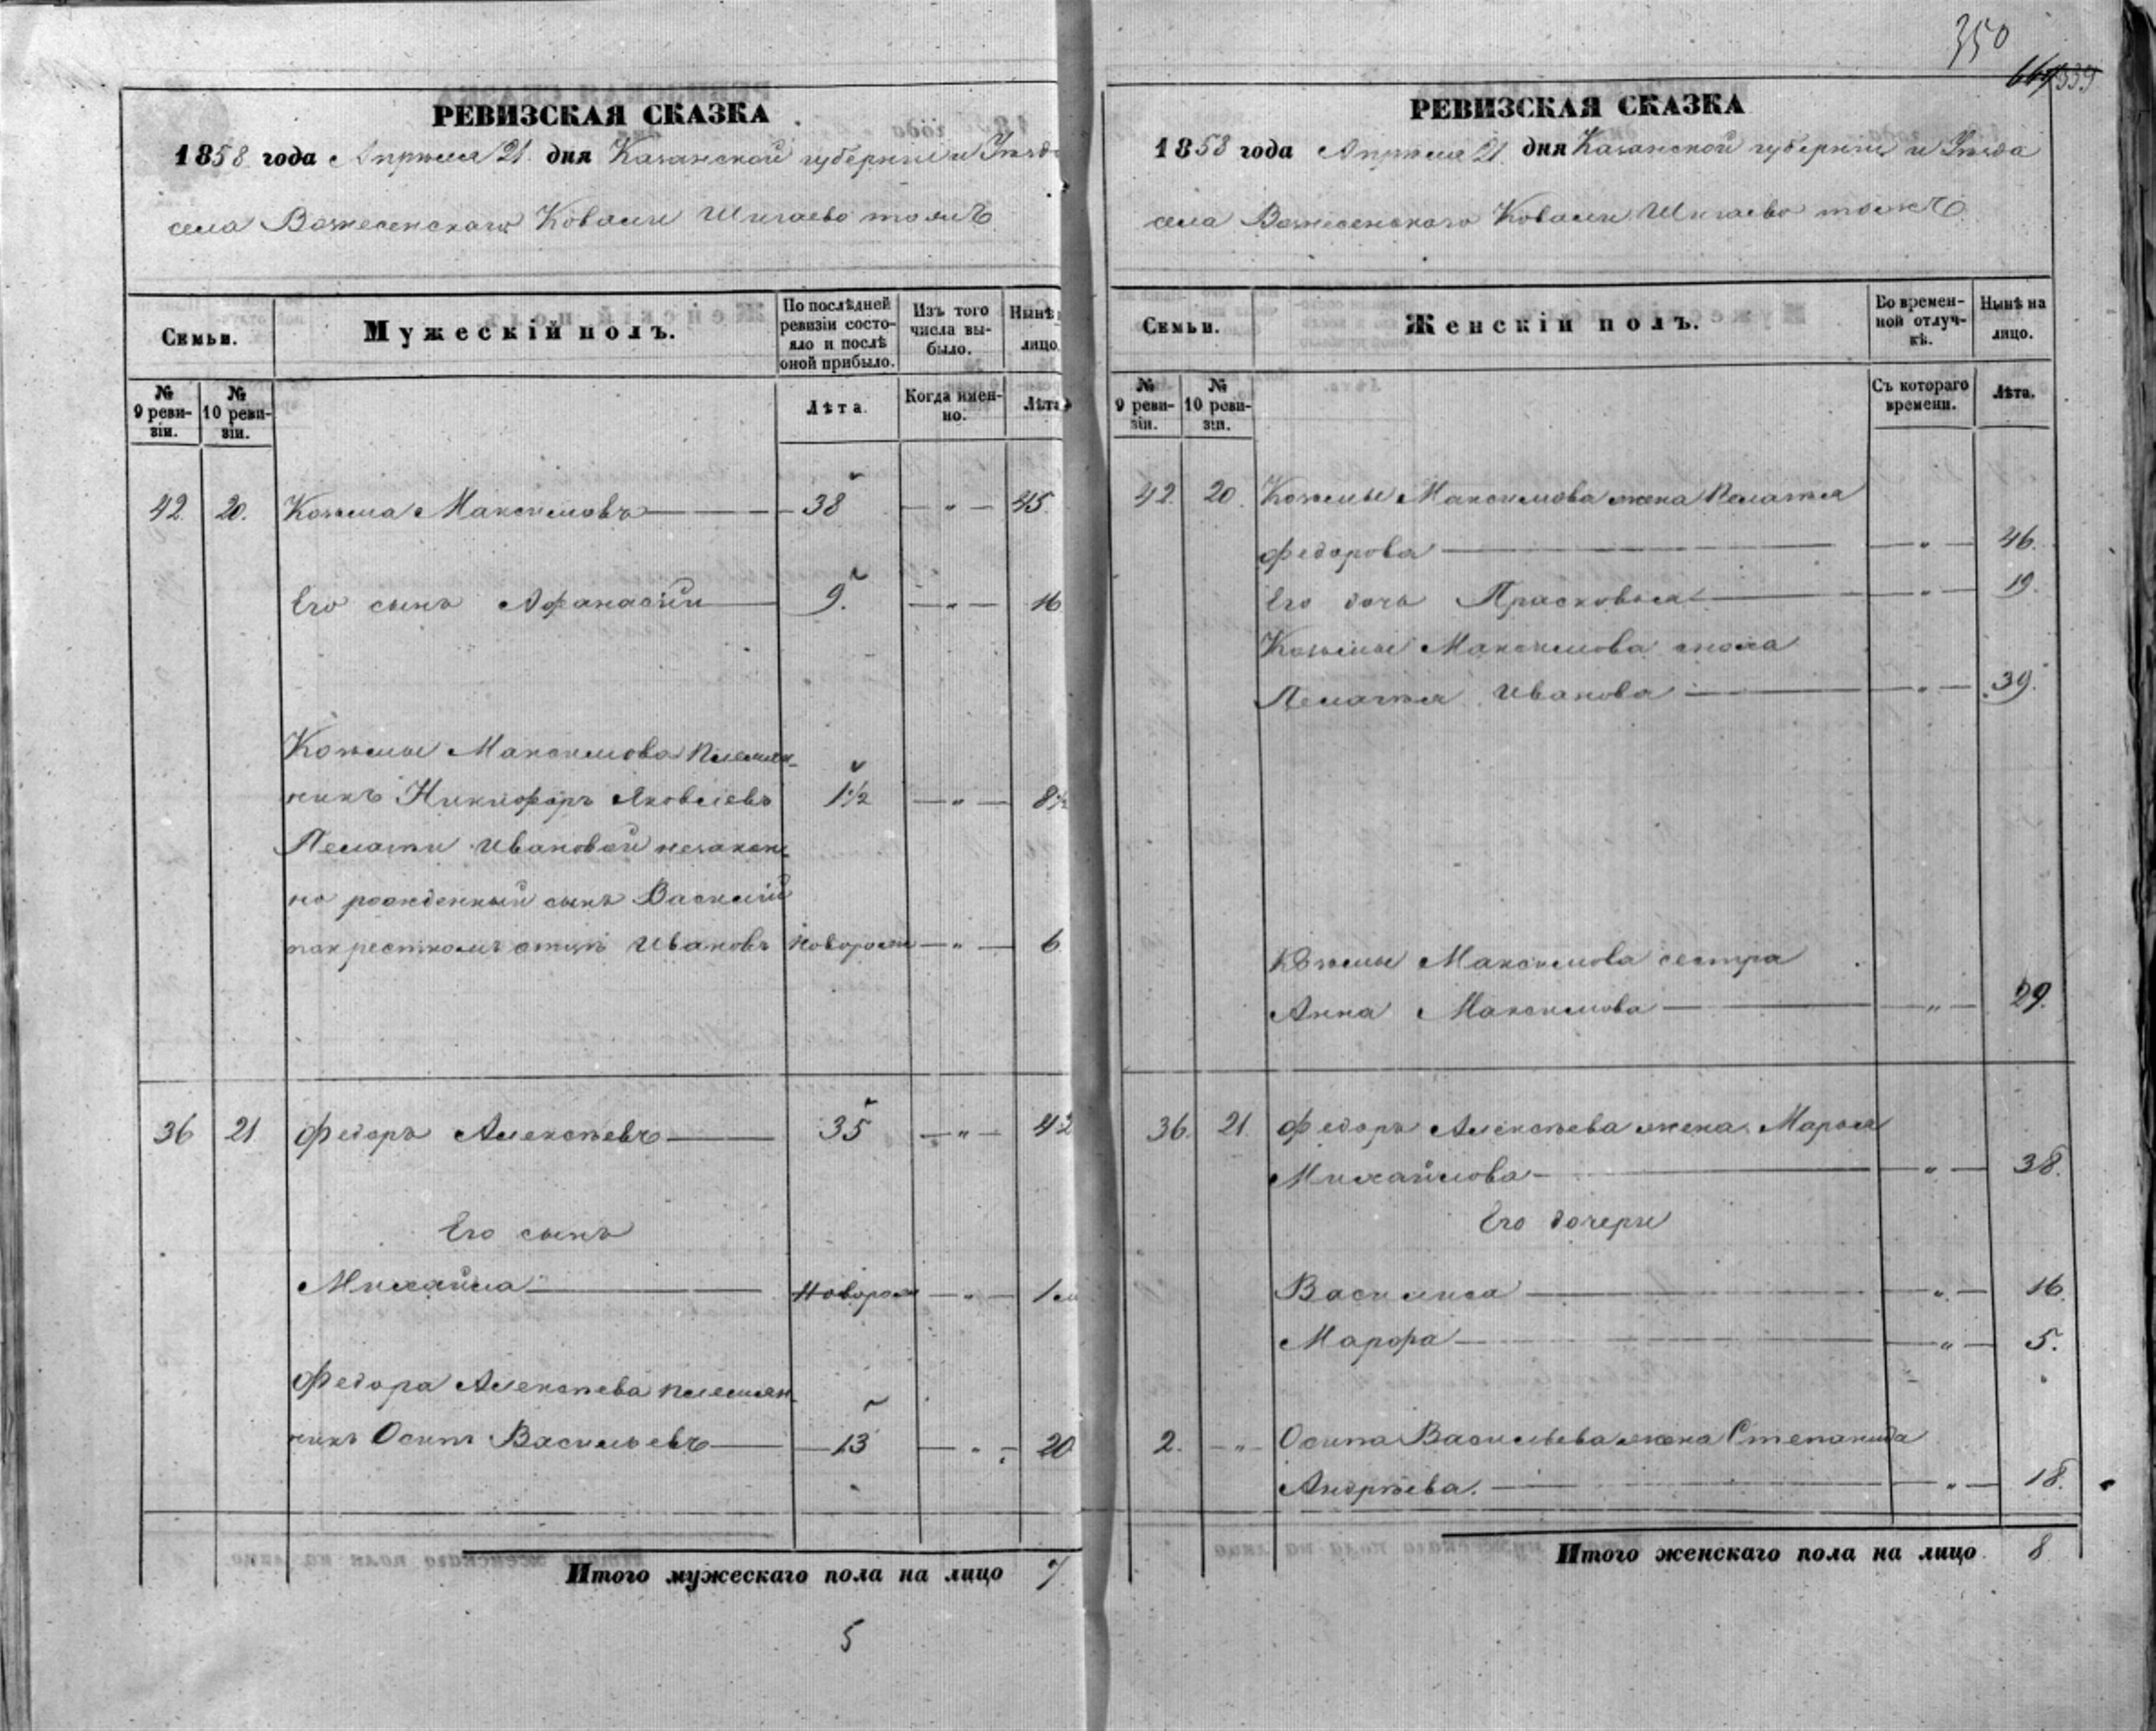 РЕВИЗСКАЯ СКАЗКА
1858 года Апрѣля 21 дня Казанской губерніи и Уѣзда
села Вознесенскаго Ковали Шигаево тожъ
Семьи.
Мужескій полъ.
По послѣдней ревизіи состояло и послѣ оной прибыло.
Изъ того числа выбыло.
Нынѣ
лицо.
№ 9 ревизіи.
№ 10 ревизіи.
Лѣта.
Когда именно.
Лѣта
42. 20. Козьма Максимовъ 38 — " — 45.
Его сынъ Афанасій 9. — " — 16
Козьмы Максимова племян-
никъ Никифоръ Яковлевъ 1½ — " — 8½
Пелагіи Ивановой незакон-
но рожденный сынъ Василій
по крестномъ отцѣ Ивановъ новорож — " — 6
36 21 Федоръ Алексѣевъ 35 — " — 42
Его сынъ
Михайла новорож — " — 1 м
Федора Алексѣева племян-
никъ Осипъ Васильевъ 13 — " — 20
Итого мужескаго пола на лицо 7.
5
350
339
РЕВИЗСКАЯ СКАЗКА
1858 года Апрѣля 21. дня Казанской губерніи и Уѣзда
села Вознесенскаго Ковали Шигаево тожъ
Семьи.
Женскій полъ.
Во временной отлучкѣ.
Нынѣ на лицо.
№ 9 ревизіи.
№ 10 ревизіи.
Съ котораго времени.
Лѣта.
42. 20. Козьмы Максимова жена Пелагѣя
Федорова — " — 46.
Его дочь Прасковья — " — 19.
Козьмы Максимова сноха
Пелагѣя Иванова — " — 39.
Козьмы Максимова сестра
Анна Максимова — " — 29.
36. 21. Федоръ Алексѣева жена Марья
Михайлова — " — 38.
Его дочери
Василиса — " — 16.
Марфа — " — 5.
2. — " — Осипа Васильева жена Степанида
Андрѣева. — " — 18.
Итого женскаго пола на лицо 8